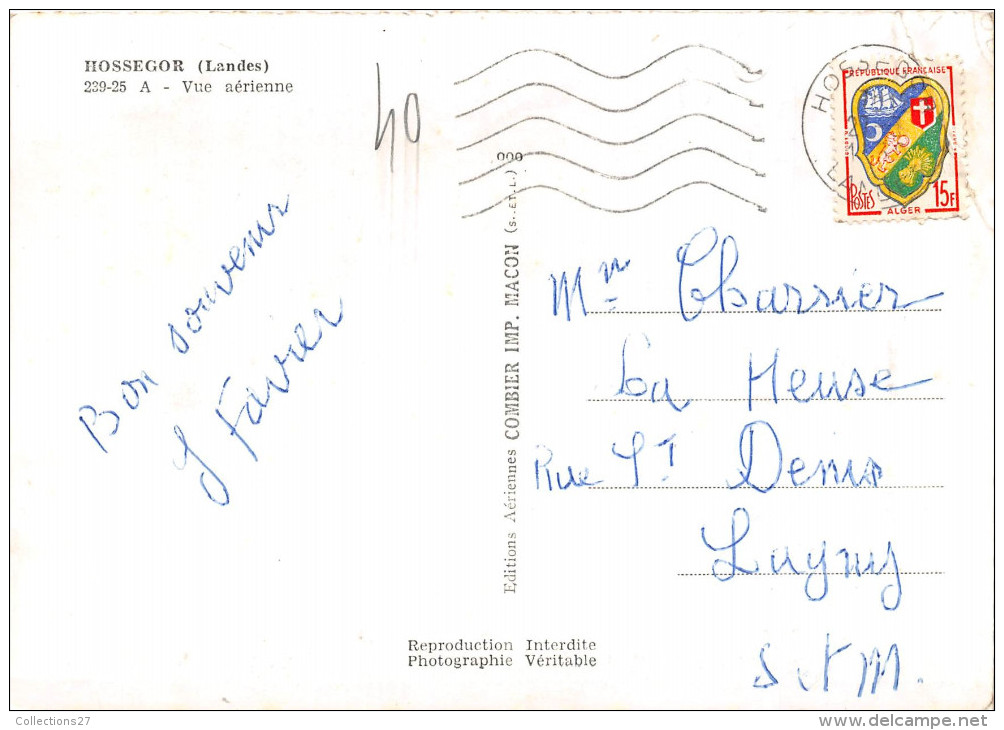 HOSSEGOR (Landes)
239-25 A - Vue aérienne
40
Bon souvenir
J Favier
Editions Aériennes COMBIER IMP. MACON (S.-ET-L.)
RÉPUBLIQUE FRANÇAISE
POSTES
15F
ALGER
HOSSEGOR
Mr Charrier
La Meuse
Rue St Denis
Lagny
S & M.
Reproduction Interdite
Photographie Véritable
Collections27